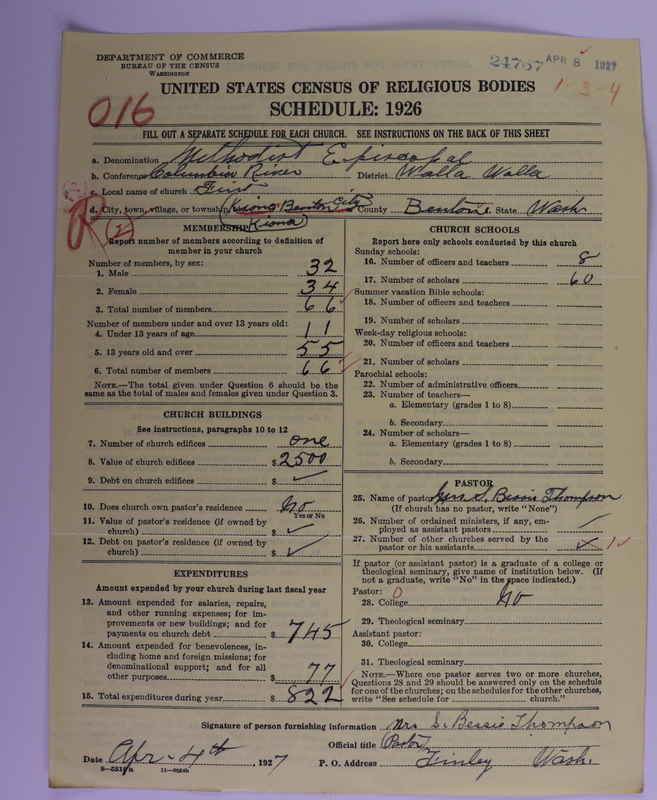 DEPARTMENT OF COMMERCE
BUREAU OF THE CENSUS
WASHINGTON
24767 APR 8 1927
UNITED STATES CENSUS OF RELIGIOUS BODIES
1-3-4
SCHEDULE: 1926
016
FILL OUT A SEPARATE SCHEDULE FOR EACH CHURCH. SEE INSTRUCTIONS ON THE BACK OF THIS SHEET
a. Denomination Methodist Episcopal
b. Conference Columbia River District Walla Walla
c. Local name of church First
d. City, town, village, or township Kiona Benton City County Benton State Wash.
Kiona
R (2)
MEMBERSHIP
Report number of members according to definition of member in your church
Number of members, by sex:
1. Male 32
2. Female 34
3. Total number of members 66
Number of members under and over 13 years old:
4. Under 13 years of age 11
5. 13 years old and over 55
6. Total number of members 66
NOTE.—The total given under Question 6 should be the
same as the total of males and females given under Question 3.
CHURCH BUILDINGS
See instructions, paragraphs 10 to 12
7. Number of church edifices one
8. Value of church edifices $ 2500
9. Debt on church edifices $ ✓
10. Does church own pastor's residence No
Yes or No
11. Value of pastor's residence (if owned by
church) $ ✓
12. Debt on pastor's residence (if owned by
church) $ ✓
EXPENDITURES
Amount expended by your church during last fiscal year
13. Amount expended for salaries, repairs,
and other running expenses; for im-
provements or new buildings; and for
payments on church debt $ 745
14. Amount expended for benevolences, in-
cluding home and foreign missions; for
denominational support; and for all
other purposes $ 77
15. Total expenditures during year $ 822
CHURCH SCHOOLS
Report here only schools conducted by this church
Sunday schools:
16. Number of officers and teachers 8
17. Number of scholars 60
Summer vacation Bible schools:
18. Number of officers and teachers
19. Number of scholars
Week-day religious schools:
20. Number of officers and teachers
21. Number of scholars
Parochial schools:
22. Number of administrative officers
23. Number of teachers—
a. Elementary (grades 1 to 8)
b. Secondary
24. Number of scholars—
a. Elementary (grades 1 to 8)
b. Secondary
PASTOR
25. Name of pastor Mrs S. Bessie Thompson
(If church has no pastor, write "None")
26. Number of ordained ministers, if any, em-
ployed as assistant pastors
27. Number of other churches served by the
pastor or his assistants ✓ 1✓
If pastor (or assistant pastor) is a graduate of a college or
theological seminary, give name of institution below. (If
not a graduate, write "No" in the space indicated.)
Pastor: 0
28. College No
29. Theological seminary
Assistant pastor:
30. College
31. Theological seminary
NOTE.—Where one pastor serves two or more churches,
Questions 28 and 29 should be answered only on the schedule
for one of the churches; on the schedules for the other churches,
write "See schedule for church."
Signature of person furnishing information Mrs S. Bessie Thompson
Official title Pastor
Date Apr-4th, 1927 P. O. Address Finley Wash.